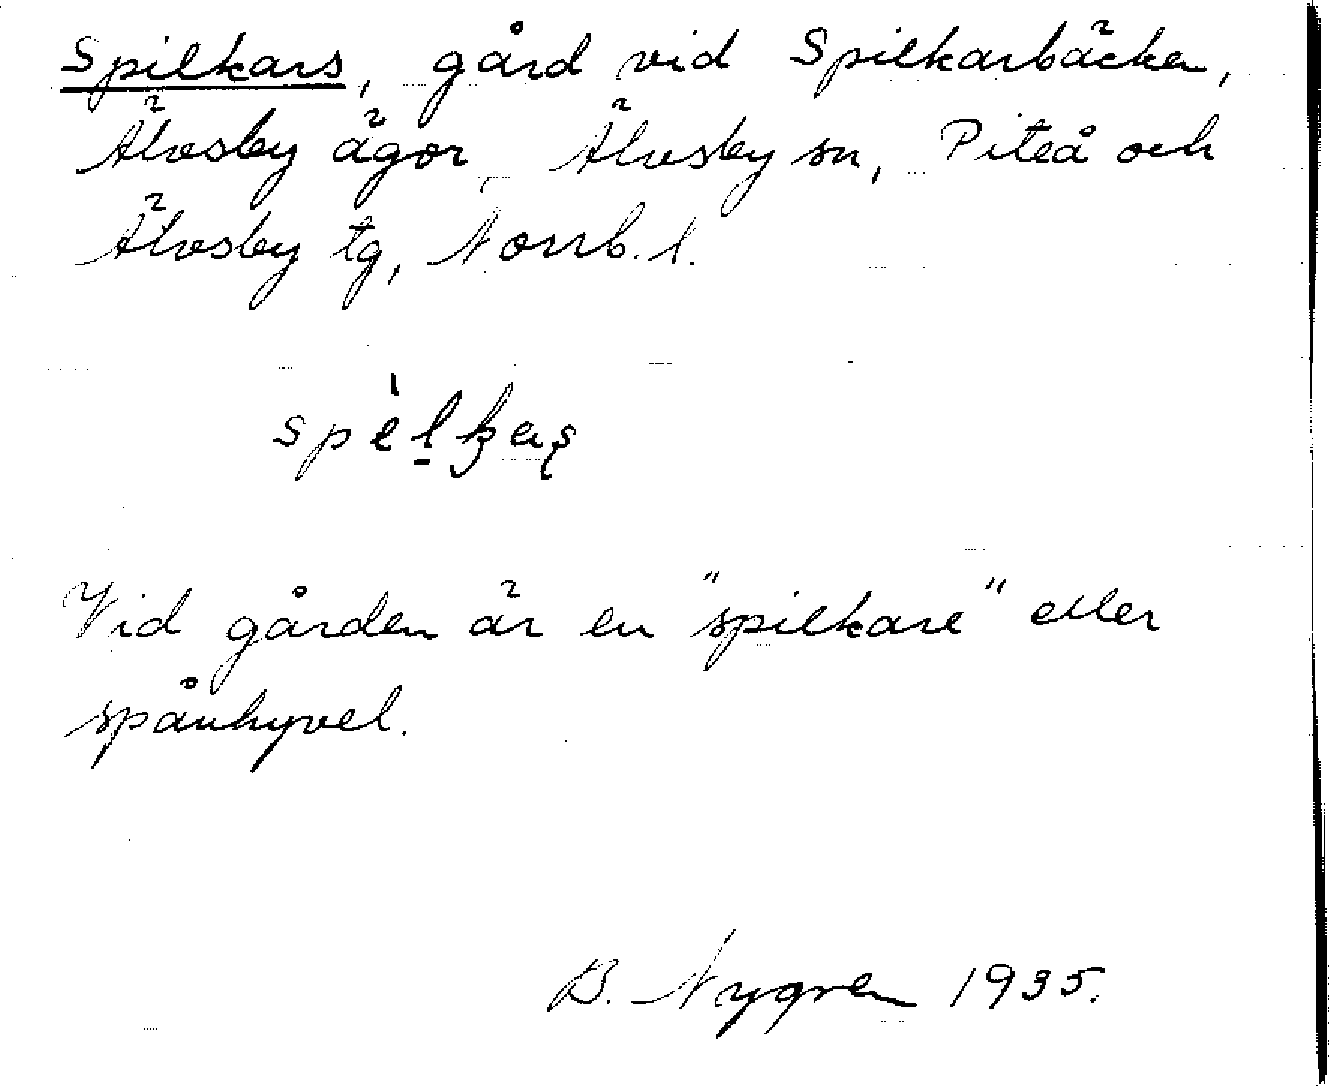 Spilkars, gård vid Spilkarbäcken,
Älvsby ägor Älvsby sn, Piteå och
Älvsby tg, Norrb. l.
Vid gården är en "spilkare" eller
spånhyvel.
B. Nygren 1935.